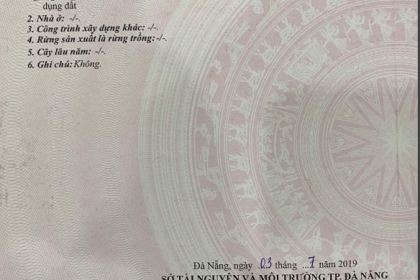 dụng đất
2. Nhà ở: -/-.
3. Công trình xây dựng khác: -/-.
4. Rừng sản xuất là rừng trồng: -/-.
5. Cây lâu năm: -/-.
6. Ghi chú: Không.
Đà Nẵng, ngày 03 tháng ...7 năm 2019
SỞ TÀI NGUYÊN VÀ MÔI TRƯỜNG TP. ĐÀ NẴNG